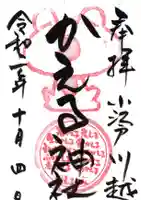 奉拝 小江戸川越
かえる神社
令和二年十月四日